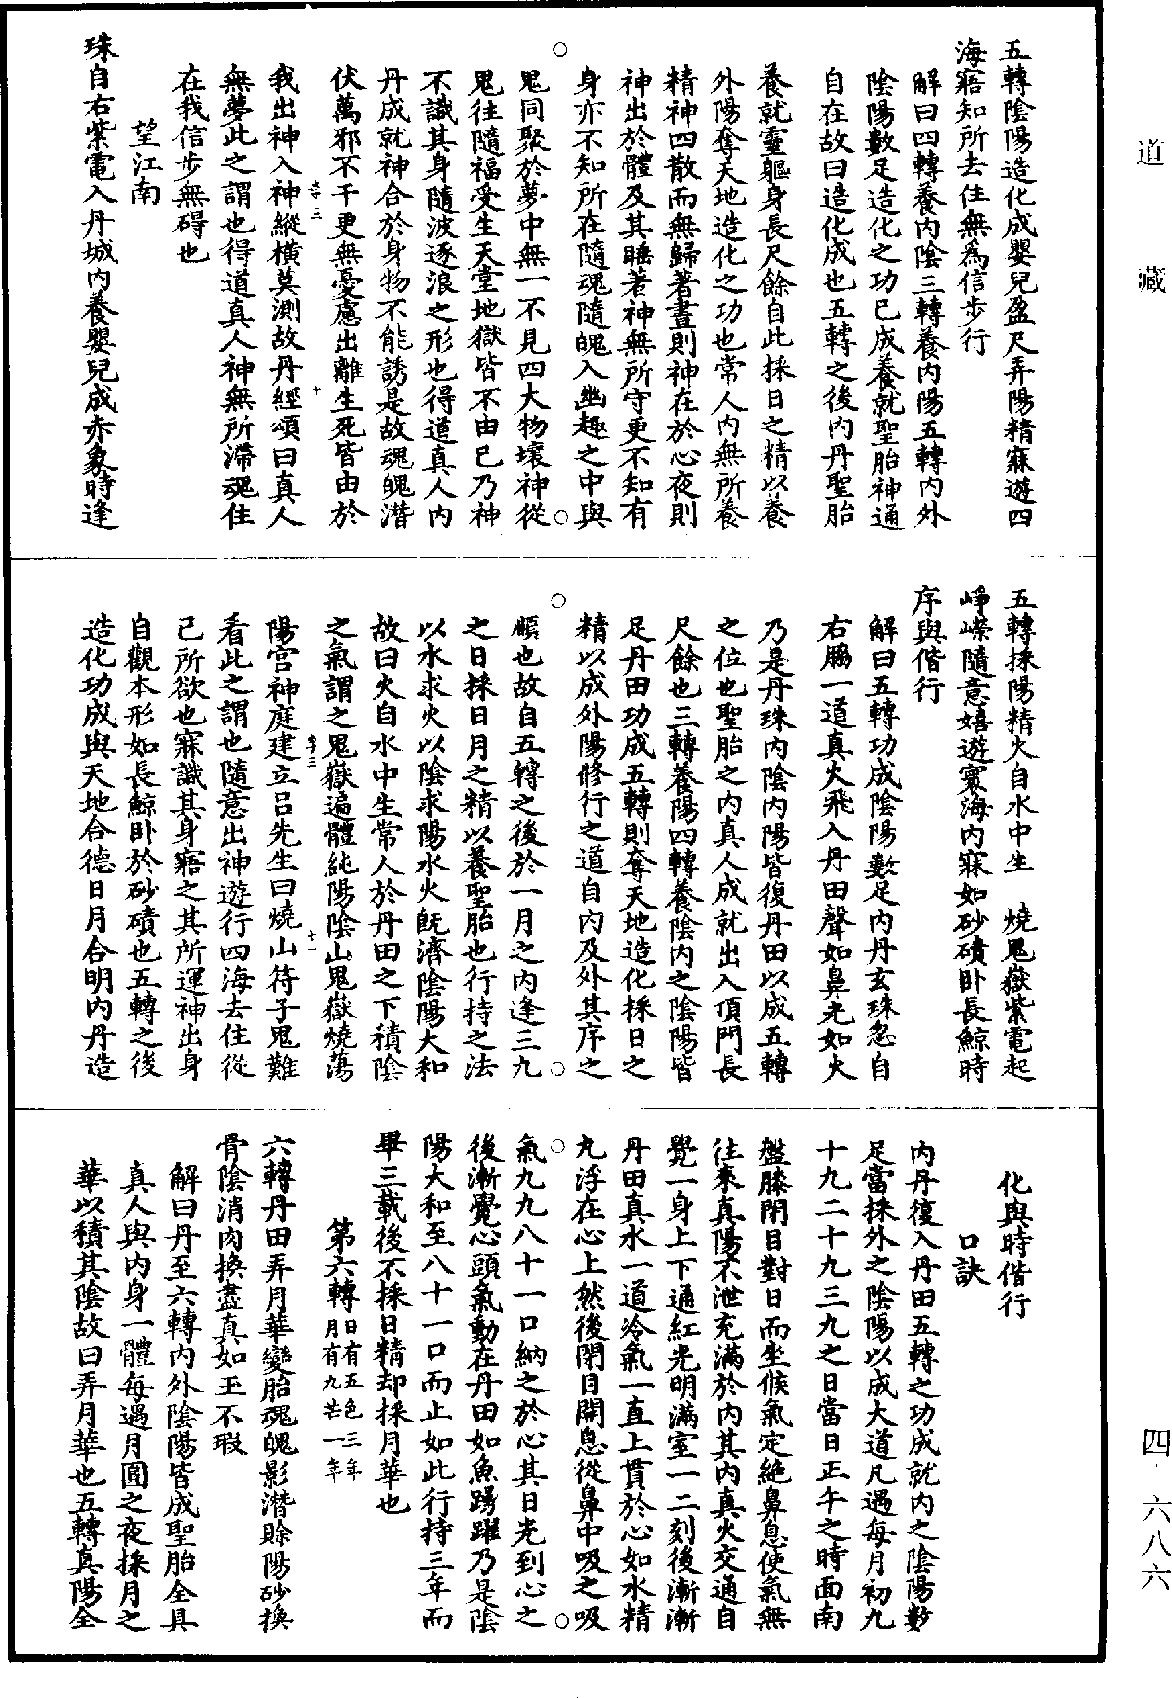 道藏
四·六八六
五轉陰陽造化成嬰兒盈尺弄陽精寐遊四
海寤知所去住無為信步行
解曰四轉養內陰三轉養內陽五轉內外
陰陽數足造化之功已成養就聖胎神通
自在故曰造化成也五轉之後內丹聖胎
養就靈軀身長尺餘自此採日之精以養
外陽奪天地造化之功也常人內無所養
精神四散而無歸著晝則神在於心夜則
神出於體及其睡著神無所守更不知有
身亦不知所在隨魂隨魄入幽趣之中與
鬼同聚於夢中無一不見四大物壞神從
鬼往隨福受生天堂地獄皆不由己乃神
不識其身隨波逐浪之形也得道真人內
丹成就神合於身物不能誘是故魂魄潛
伏萬邪不干更無憂慮出離生死皆由於
我出神入神縱橫莫測故丹經頌曰真人
無夢此之謂也得道真人神無所滯魂住
在我信步無碍也
望江南
珠自右紫電入丹城內養嬰兒成赤象時逢
五轉採陽精火自水中生 燒鬼嶽紫電起
崢嶸隨意嬉遊寰海內寐如砂磧卧長鯨時
序與偕行
解曰五轉功成陰陽數足內丹玄珠忽自
右脇一道真火飛入丹田聲如鼻光如火
乃是丹珠內陰內陽皆復丹田以成五轉
之位也聖胎之內真人成就出入頂門長
尺餘也三轉養陽四轉養陰內之陰陽皆
足丹田功成五轉則奪天地造化採日之
精以成外陽修行之道自內及外其序之
順也故自五轉之後於一月之內逢三九
之日採日月之精以養聖胎也行持之法
以水求火以陰求陽水火既濟陰陽大和
故曰火自水中生常人於丹田之下積陰
之氣謂之鬼嶽遍體純陽陰山鬼嶽燒蕩
陽宮神庭建立呂先生曰燒山符子鬼難
看此之謂也隨意出神遊行四海去住從
己所欲也寐識其身寤之其所運神出身
自觀本形如長鯨卧於砂磧也五轉之後
造化功成與天地合德日月合明內丹造
化與時偕行
口訣
內丹復入丹田五轉之功成就內之陰陽數
足當採外之陰陽以成大道凡遇每月初九
十九二十九三九之日當日正午之時面南
盤膝閉目對日而坐候氣定絕鼻息使氣無
往來真陽不泄充滿於內其內真火交通自
覺一身上下通紅光明滿室一二刻後漸漸
丹田真水一道冷氣一直上貫於心如水精
九浮在心上然後閉目開息從鼻中吸之吸
氣九九八十一口納之於心其日光到心之
後漸覺心頭氣動在丹田如魚踴躍乃是陰
陽大和至八十一口而止如此行持三年而
畢三載後不採日精却採月華也
第六轉日有五色三年月有九芒一年
六轉丹田弄月華變胎魂魄影潛賒陽砂換
骨陰消肉換盡真如玉不瑕
解曰丹至六轉內外陰陽皆成聖胎全具
真人與內身一體每遇月圓之夜採月之
華以積其陰故曰弄月華也五轉真陽全